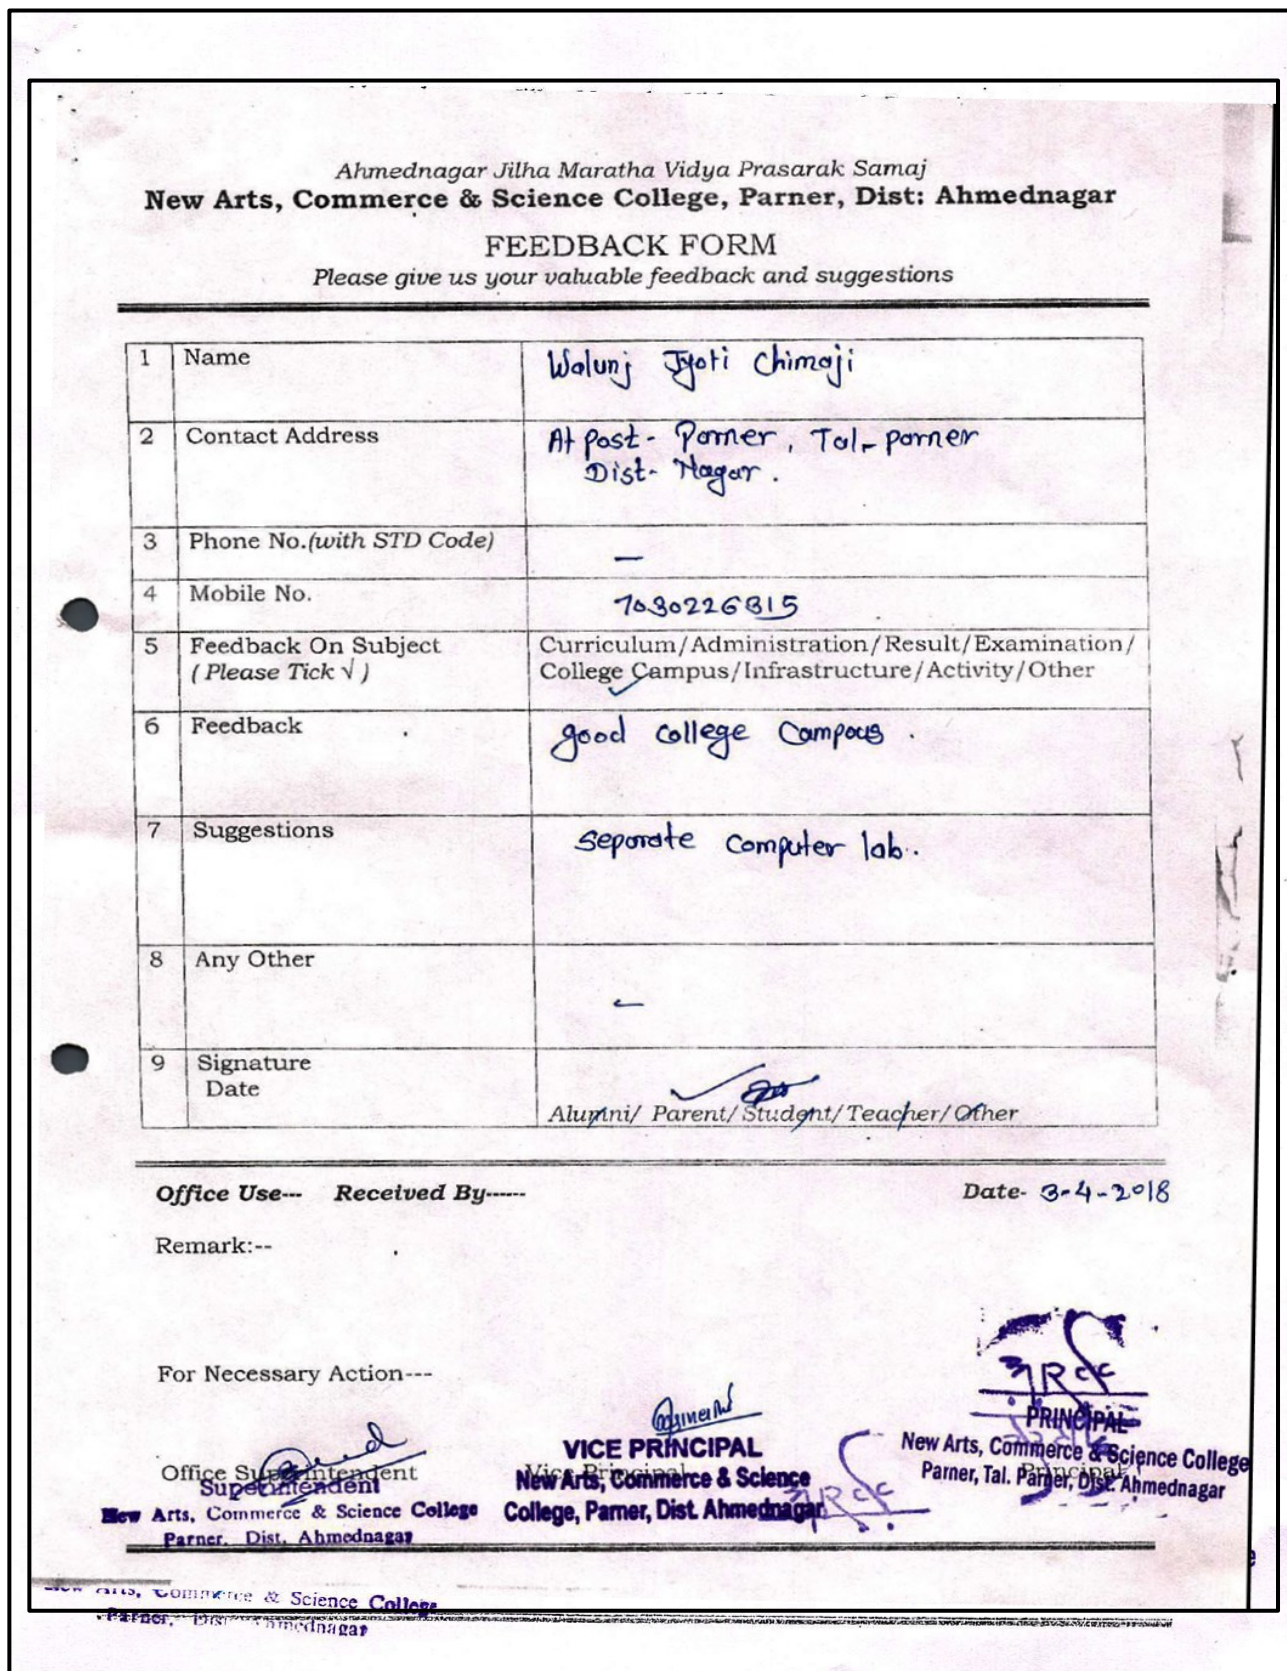 Ahmednagar Jilha Maratha Vidya Prasarak Samaj
New Arts, Commerce & Science College, Parner, Dist: Ahmednagar
FEEDBACK FORM
Please give us your valuable feedback and suggestions
1 Name Walunj Jyoti Chimaji
2 Contact Address At post- Parner, Tal- parner
Dist- Nagar.
3 Phone No.(with STD Code) —
4 Mobile No. 7030226815
5 Feedback On Subject Curriculum/Administration/Result/Examination/
( Please Tick √ ) College Campus/Infrastructure/Activity/Other
6 Feedback good college Campous.
7 Suggestions Separate Computer lab.
8 Any Other –
9 Signature
Date
Alumni/ Parent/Student/Teacher/Other
Office Use--- Received By------ Date- 3-4-2018
Remark:--
For Necessary Action---
Office Superintendent Vice Principal Principal
Superintendent
New Arts, Commerce & Science College
Parner, Dist. Ahmednagar
VICE PRINCIPAL
New Arts, Commerce & Science
College, Parner, Dist. Ahmednagar
PRINCIPAL
New Arts, Commerce & Science College
Parner, Tal. Parner, Dist. Ahmednagar
New Arts, Commerce & Science College
Parner, Dist. Ahmednagar